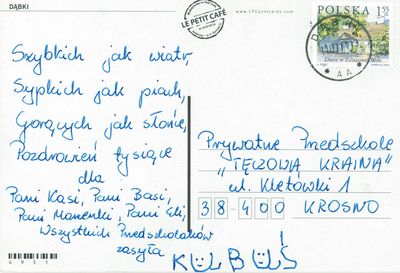 DĄBKI
LE PETIT CAFÉ
www.LPCpostcards.com
POLSKA 1,55
Dwór w Żelazowej Woli
AA
Szybkich jak wiatr,
Sypkich jak piach,
Gorących jak słońce,
Pozdrowień tysiące
dla
Pani Kasi, Pani Basi,
Pani Marenki, Pani Eli,
Wszystkich Przedszkolaków
zasyła
KUBUŚ!
Prywatne Przedszkole
"TĘCZOWA KRAINA"
ul. Kletówki 1
38-400 KROSNO
4951